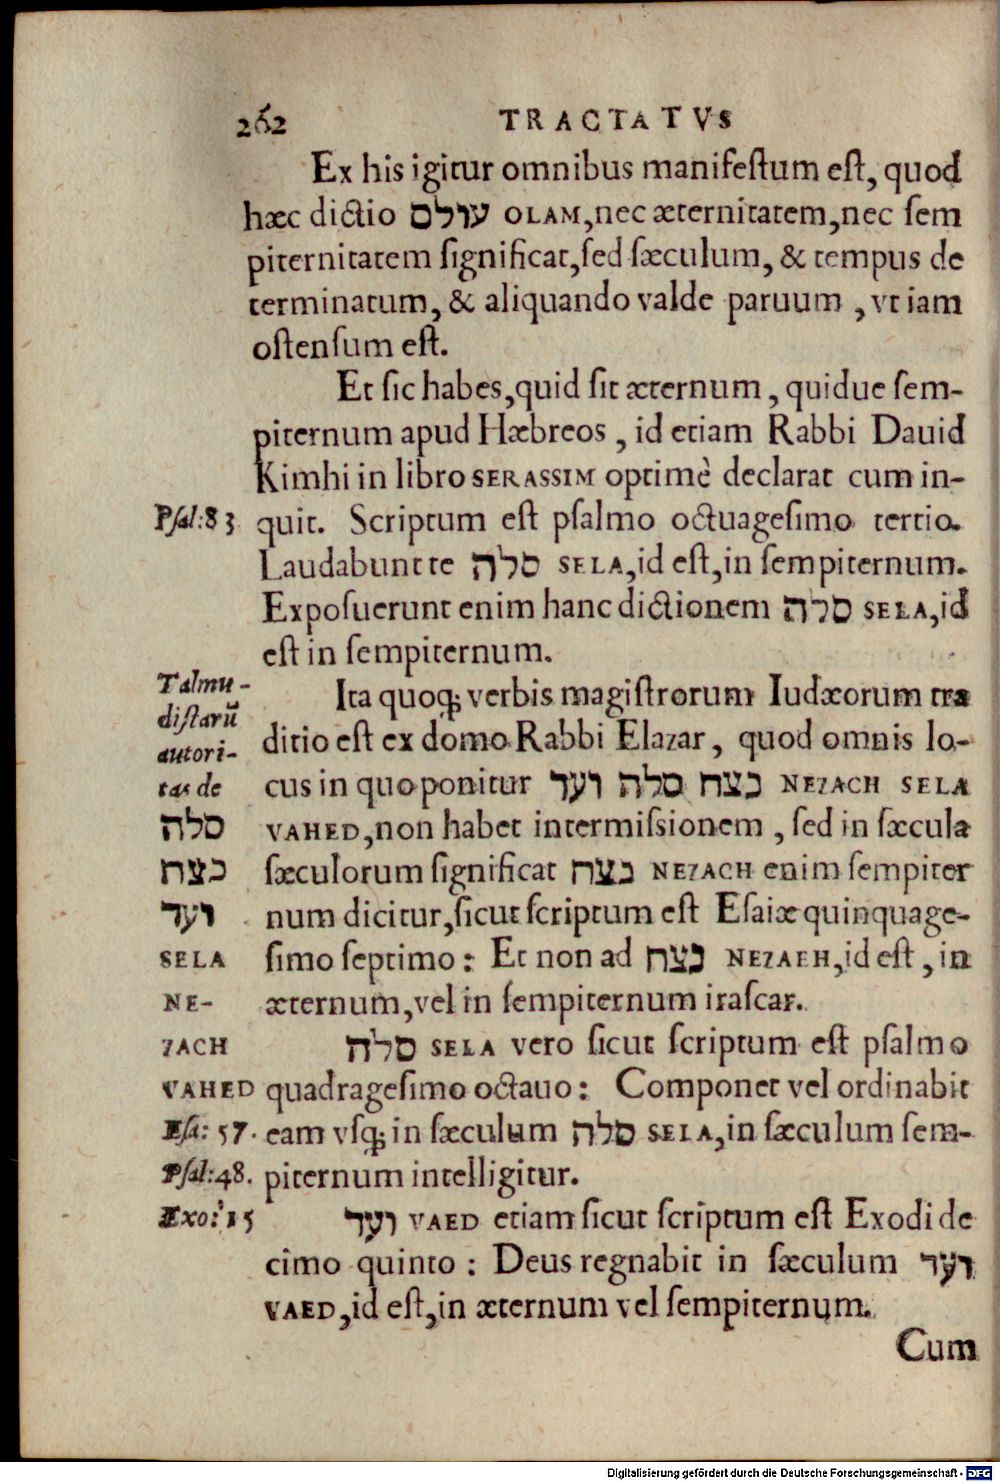 262 TRACTATVS
Ex his igitur omnibus manifestum est, quod
hæc dictio עולם OLAM, nec æternitatem, nec sem
piternitatem significat, sed sæculum, & tempus de
terminatum, & aliquando valde paruum, vt iam
ostensum est.
Et sic habes, quid sit æternum, quidue sem-
piternum apud Hæbreos, id etiam Rabbi Dauid
Kimhi in libro SERASSIM optimè declarat cum in-
Psal:83 quit. Scriptum est psalmo octuagesimo tertio.
Laudabunt te סלה SELA, id est, in sempiternum.
Exposuerunt enim hanc dictionem סלה SELA, id
est in sempiternum.
Talmu-
distarū
autori-
tas de
סלה
נצח
ועד
SELA
NE-
ZACH
VAHED
Esa: 57.
Psal:48.
Exo: 15
Ita quoq; verbis magistrorum Iudæorum tra
ditio est ex domo Rabbi Elazar, quod omnis lo-
cus in quo ponitur נצח סלה ועד NEZACH SELA
VAHED, non habet intermissionem, sed in sæcula
sæculorum significat נצח NEZACH enim sempiter
num dicitur, sicut scriptum est Esaiæ quinquage-
simo septimo: Et non ad נצח NEZAEH, id est, in
æternum, vel in sempiternum irascar.
סלה SELA vero sicut scriptum est psalmo
quadragesimo octauo: Componet vel ordinabit
eam vsq; in sæculum סלה SELA, in sæculum sem-
piternum intelligitur.
ועד VAED etiam sicut scriptum est Exodi de
cimo quinto: Deus regnabit in sæculum ועד
VAED, id est, in æternum vel sempiternum.
Cum
Digitalisierung gefördert durch die Deutsche Forschungsgemeinschaft - DFG